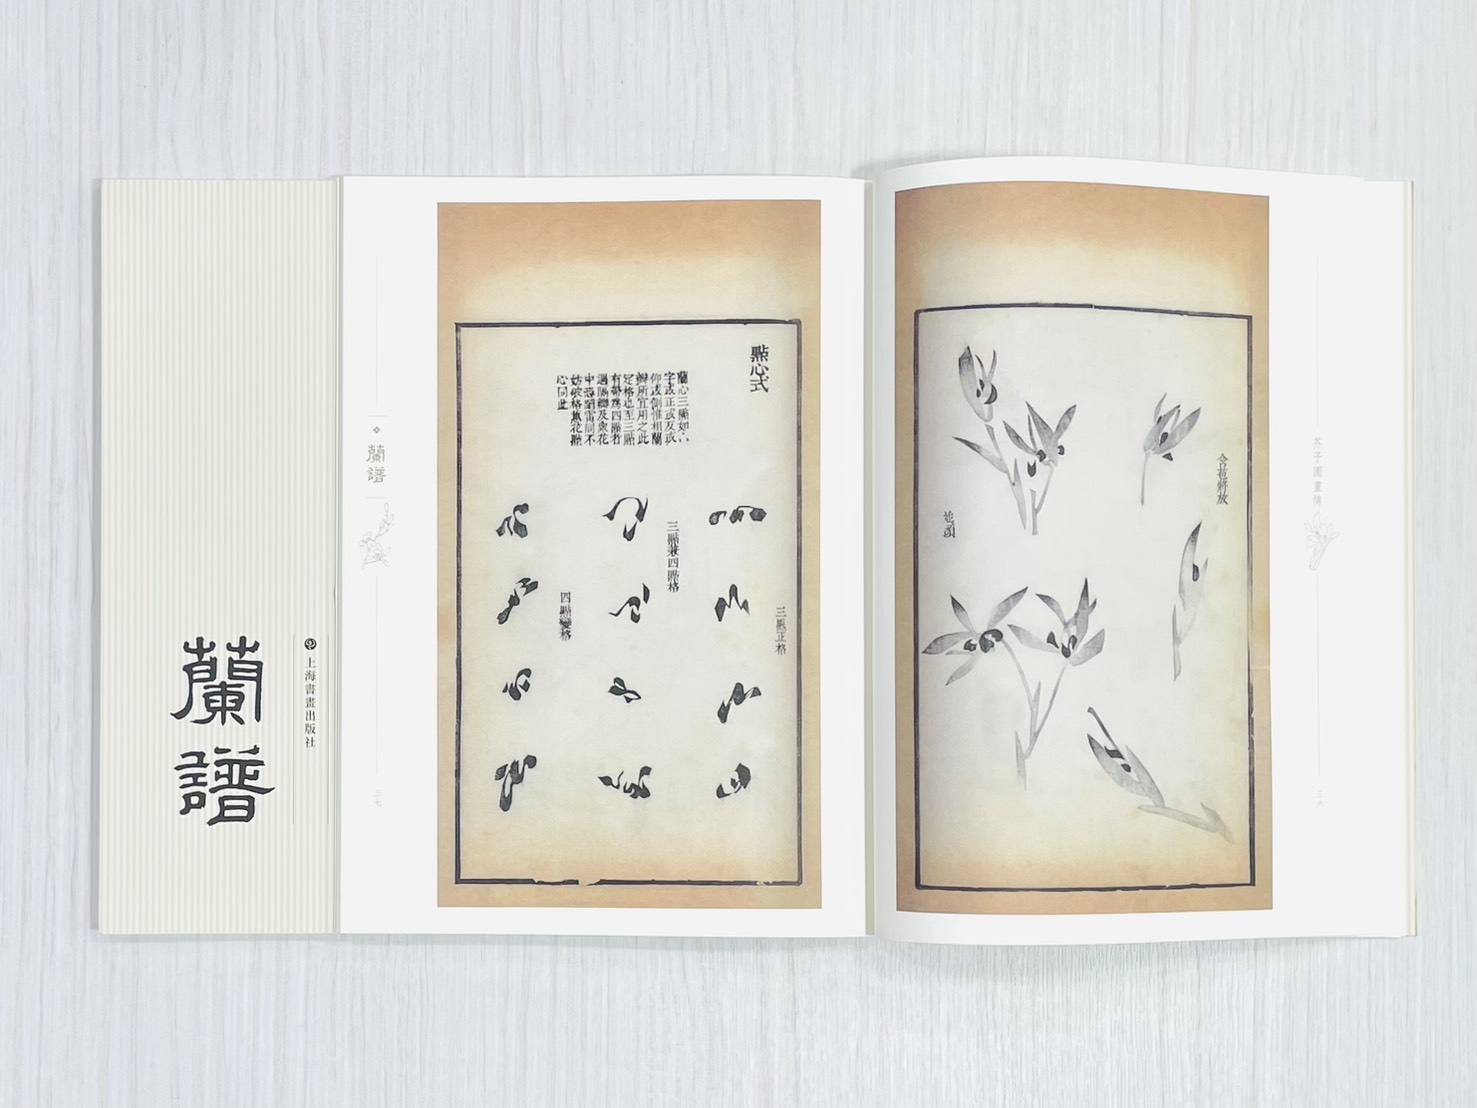 芥子園畫傳
三六
含苞將放
並頭
點心式
蘭心三點如山
字或正或反或
仰或側惟相蘭
瓣所宜用之此
定格也至三點
有帶爲四點者
遇陽瓣及衆花
中恐蹈雷同不
妨破格蕙花點
心同此
三點正格
三點兼四點格
四點變格
蘭譜
三七
上海書畫出版社
蘭譜